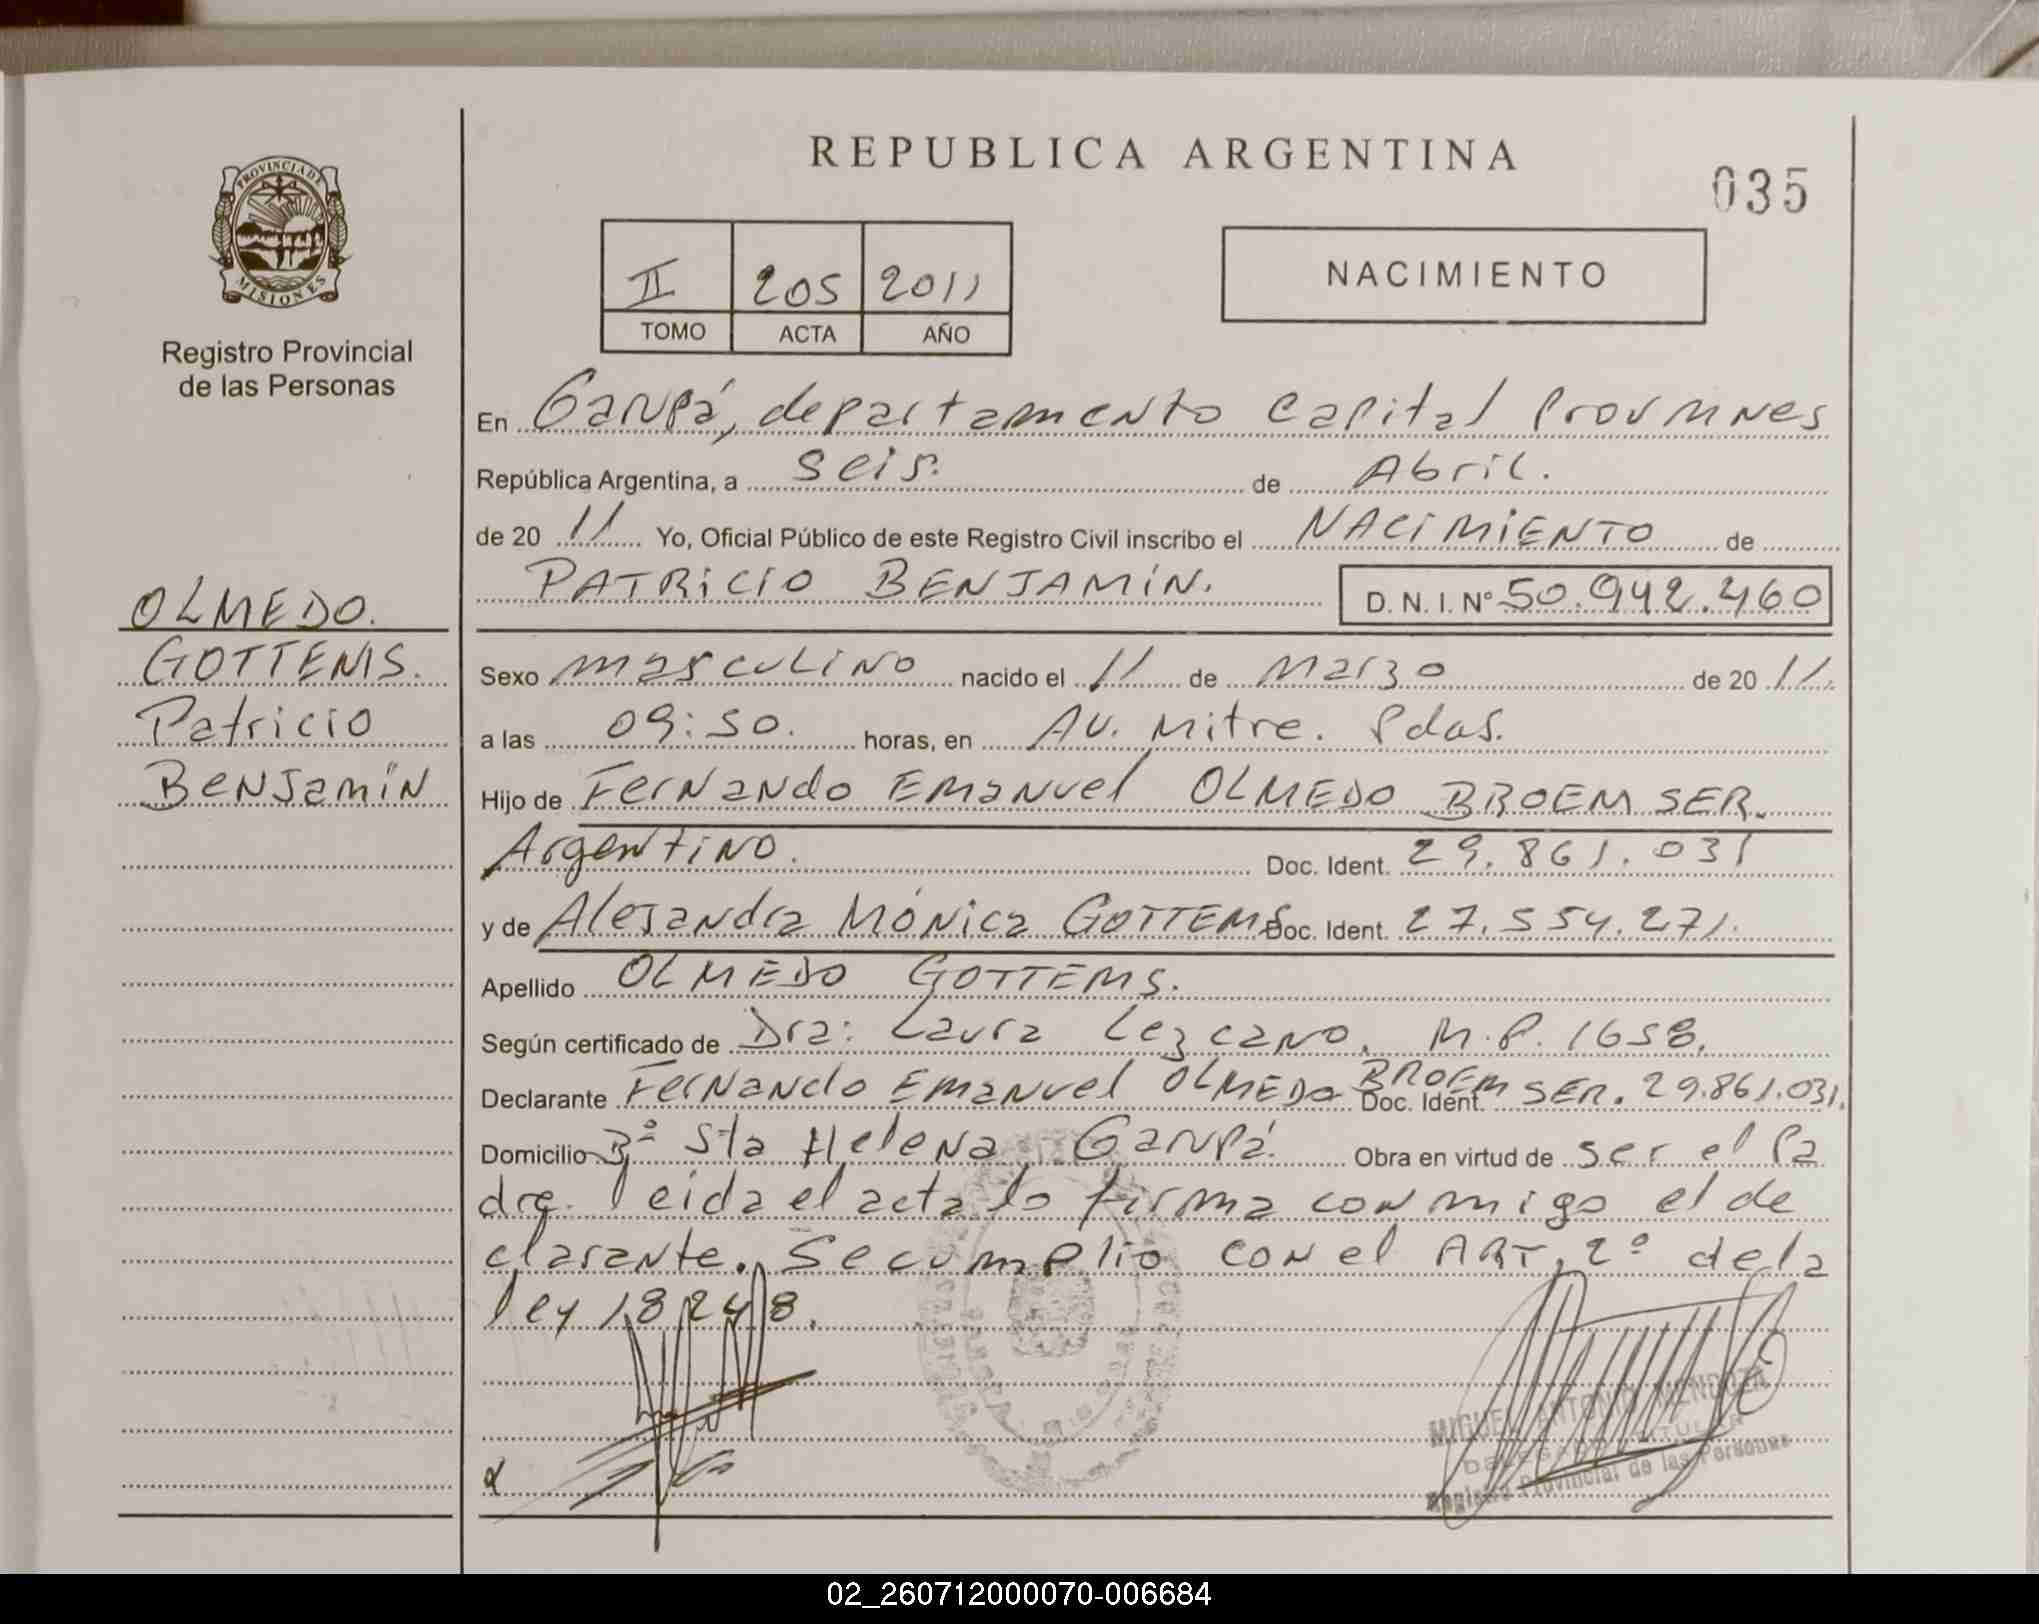 REPUBLICA ARGENTINA
035
PROVINCIA DE
MISIONES
Registro Provincial
de las Personas
II 205 2011
TOMO ACTA AÑO
NACIMIENTO
En Garupá, departamento Capital Prov MNes
República Argentina, a seis. de Abril.
de 20 11 Yo, Oficial Público de este Registro Civil inscribo el NACIMIENTO de
PATRICIO BENJAMIN. D. N. I. Nº 50.942.460
OLMEDO.
GOTTEMS.
Patricio
Benjamin
Sexo masculino nacido el 11 de Marzo de 20 11.
a las 09:50. horas, en Av. Mitre. Pdas.
Hijo de Fernando Emanuel OLMEDO BROEMSER.
Argentino. Doc. Ident. 29.861.031
y de Alejandra Mónica GOTTEMS Doc. Ident. 27.554.271.
Apellido OLMEDO GOTTEMS.
Según certificado de Dra: Laura Lezcano. M.P. 1658.
Declarante Fernando Emanuel OLMEDO BROEMSER. Doc. Ident. 29.861.031.
Domicilio Bº Sta Helena Garupá. Obra en virtud de ser el Pa
dre. leida el acta lo firma conmigo el de
clarante. Se cumplio con el ART. 2º de la
ley 18248.
MIGUEL ANTONIO MENDOZA
DELEGADO TITULAR
Registro Provincial de las Personas
02_260712000070-006684